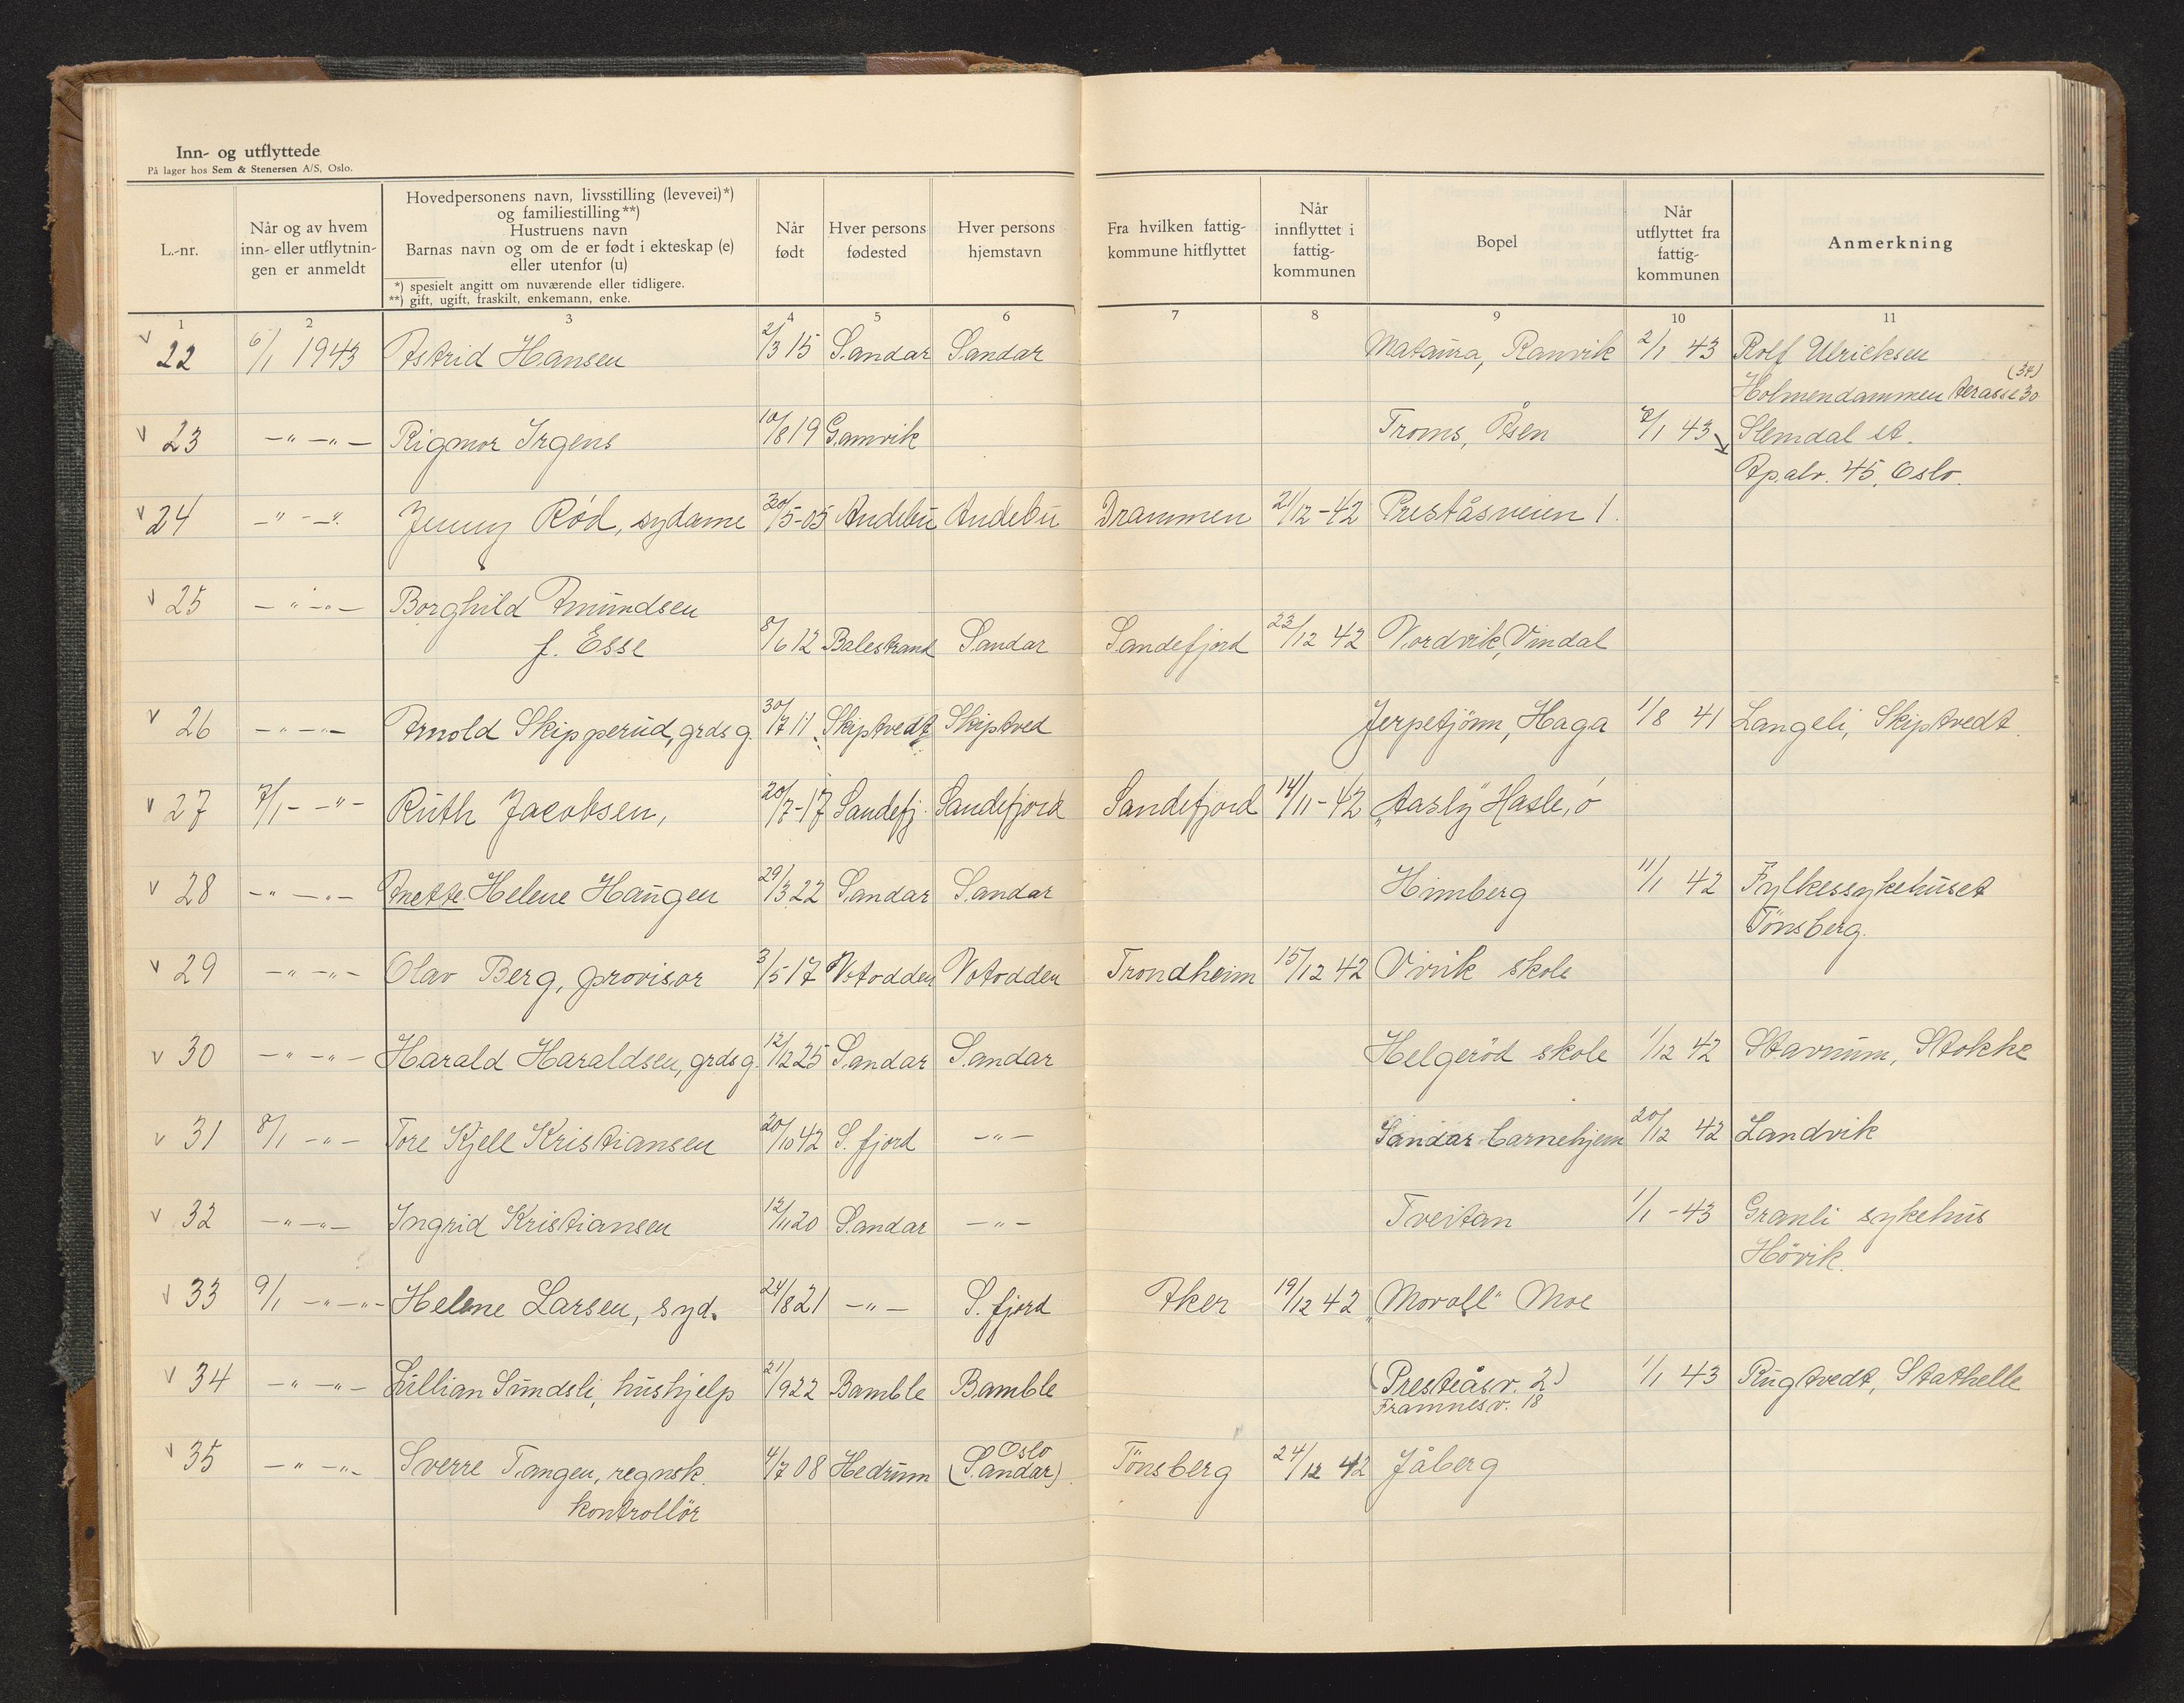 Inn- og utflyttede
På lager hos Sem & Stenersen A/S, Oslo.
L.-nr.
Når og av hvem
inn- eller utflytnin-
gen er anmeldt
Hovedpersonens navn, livsstilling (levevei)*)
og familiestilling**)
Hustruens navn
Barnas navn og om de er født i ekteskap (e)
eller utenfor (u)
*) spesielt angitt om nuværende eller tidligere.
**) gift, ugift, fraskilt, enkemann, enke.
Når
født
Hver persons
fødested
Hver persons
hjemstavn
Fra hvilken fattig-
kommune hitflyttet
Når
innflyttet i
fattig-
kommunen
Bopel
Når
utflyttet fra
fattig-
kommunen
Anmerkning
1 2 3 4 5 6 7 8 9 10 11
v 22 6/1 1943 Astrid Hansen 2/3 15 Sandar Sandar Mataura, Ranvik 2/1 43 Rolf Ulricksen
(34)
Holmendammen terasse 30
v 23 -"-"- Rigmor Irgens 10/8 19 Gamvik Troms, Åsen 7/1 43 Slemdal st.
Apalv. 45, Oslo.
v 24 -"-"- Jenny Rød, sydame 30/5-05 Andebu Andebu Drammen 21/12-42 Preståsveien 1.
v 25 -"-"- Borghild Amundsen
f. Esse 8/6 12 Balestrand Sandar Sandefjord 23/12 42 Nordvik, Vindal
v 26 -"-"- Arnold Skipperud, grdsg. 30/7 11 Skiptvedt Skiptved Jerpetjönn, Haga 1/8 41 Langeli, Skiptvedt.
v 27 7/1- -"- Ruth Jacobsen, 20/7-17 Sandefj. Sandefjord Sandefjord 14/11-42 "Aasly" Hasle, ö
v 28 -"-"- Anette Helene Haugen 29/3 22 Sandar Sandar Himberg 11/1 42 Fylkessykehuset
Tönsberg.
v 29 -"-"- Olav Berg, provisor 3/5 17 Notodden Notodden Trondheim 15/12 42 Virik skole
v 30 -"-"- Harald Haraldsen, grdsg. 12/12 25 Sandar Sandar Helgeröd skole 1/12 42 Stavnum, Stokke
v 31 8/1 -"- Tore Kjell Kristiansen 20/10 42 S. fjord -"- Sandar barnehjem 20/12 42 Landvik
v 32 -"-"- Ingrid Kristiansen 12/11 20 Sandar -"- Tveitan 1/1-43 Granli sykehus
Hövik.
v 33 9/1 -"-"- Helene Larsen, syd. 24/8 21 -"- S. fjord Aker 19/12 42 "Movoll" Moe
v 34 -"-"- Lillian Sundsli, hushjelp 21/9 22 Bamble Bamble (Presteåsv. 2) 1/1 43 Rugtvedt, Stathelle
Framnesv. 18
Oslo
v 35 -"-"- Sverre Tangen, regnsk. 4/7 08 Hedrum (Sandar) Tönsberg 24/12 42 Jåberg
kontrollör